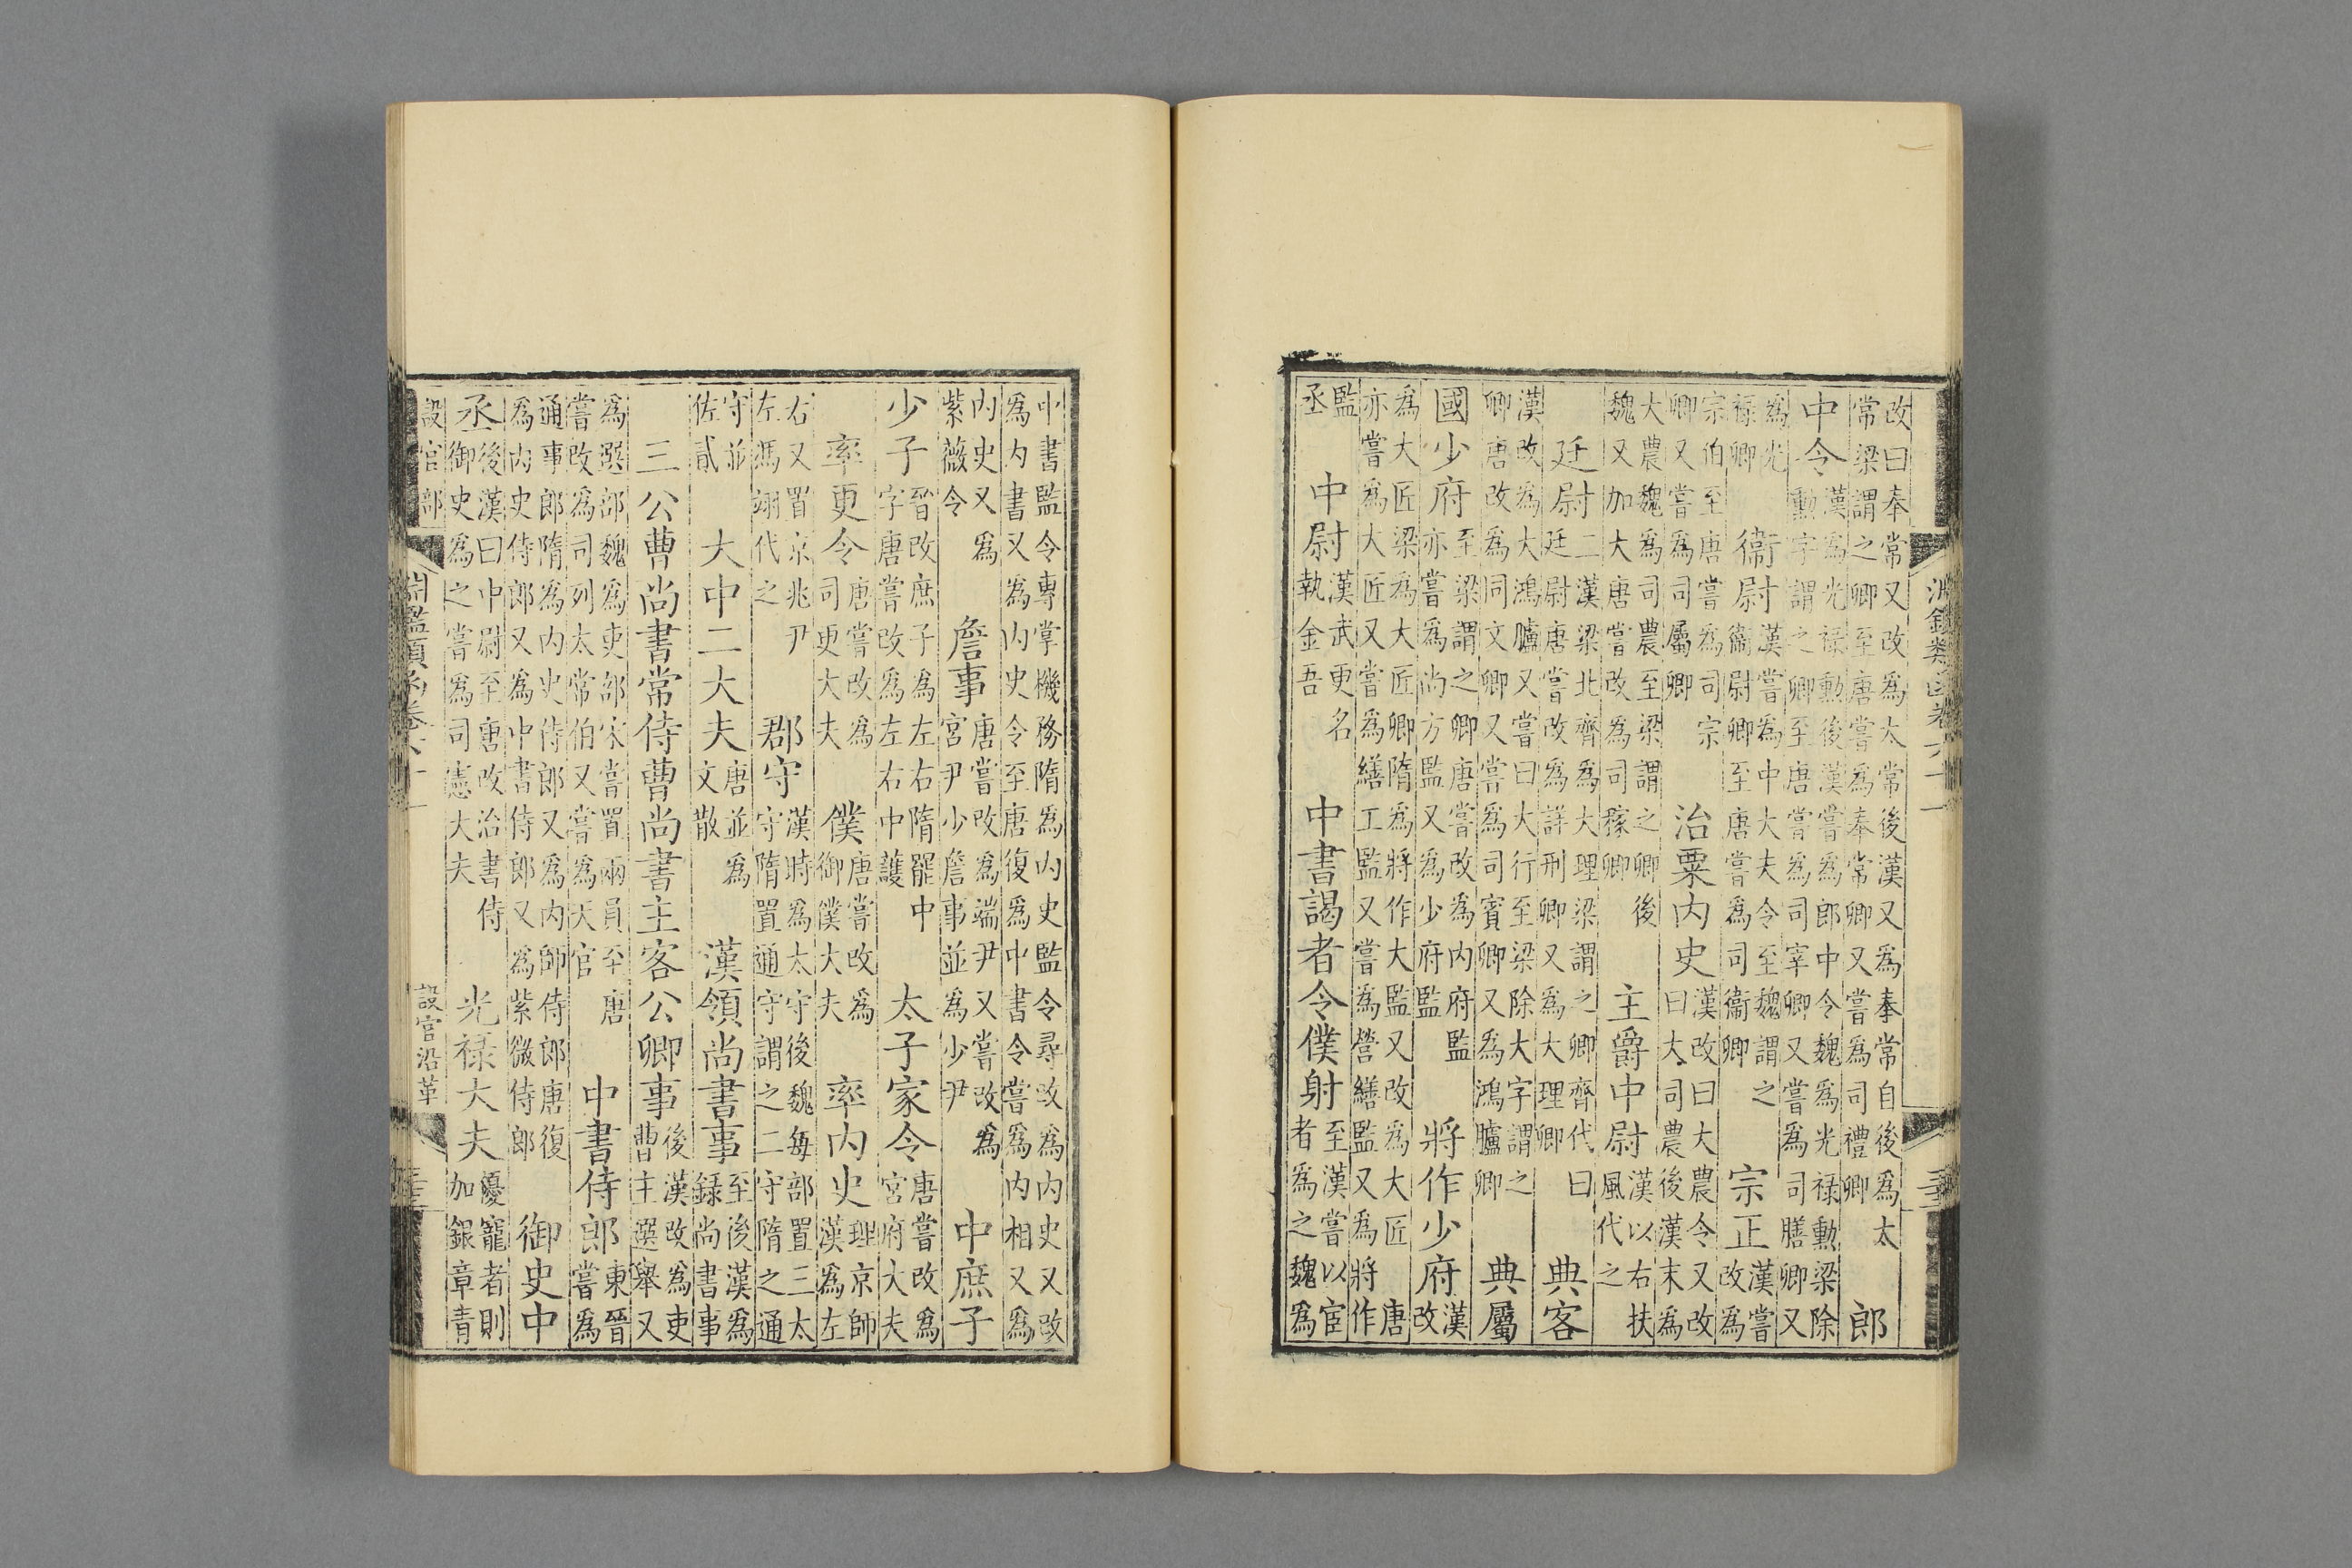 淵鑑類函卷六十一
改曰奉常又改爲太常後漢又爲奉常自後爲太常梁謂之卿至唐嘗爲奉常卿又嘗爲司禮卿郎
中令漢爲光祿勳後漢嘗爲郎中令魏爲光祿勳梁除勳字謂之卿至唐嘗爲司宰卿又嘗爲司膳卿又
爲光祿卿衞尉漢嘗爲中大夫令至魏謂之衞尉卿至唐嘗爲司衞卿宗正漢嘗改爲
宗伯至唐嘗爲司宗卿又嘗爲司屬卿治粟内史漢改曰大農令又改曰大司農後漢末爲
大農魏爲司農至梁謂之卿後魏又加大唐嘗改爲司稼卿主爵中尉漢以右扶風代之
廷尉二漢梁北齊爲大理梁謂之卿齊代曰廷尉唐嘗改爲詳刑卿又爲大理卿典客
漢改爲大鴻臚又嘗曰大行至梁除大字謂之卿唐改爲同文卿又嘗爲司賓卿又爲鴻臚卿典屬
國少府至梁謂之卿唐嘗改爲内府監亦嘗爲尚方監又爲少府監將作少府漢改
爲大匠梁爲大匠卿隋爲將作大監又改爲大匠唐亦嘗爲大匠又嘗爲繕工監又嘗爲營繕監又爲將作
監丞中尉漢武更名執金吾中書謁者令僕射至漢嘗以宦者爲之魏爲
中書監令專掌機務隋爲内史監令尋改爲内史又改爲内書又爲内史令至唐復爲中書令嘗爲内相又爲
内史又爲紫薇令詹事唐嘗改爲端尹又嘗改爲宮尹少詹事並爲少尹中庶子
少子晉改庶子爲左右隋罷中字唐嘗改爲左右中護太子家令唐嘗改爲宮府大夫
率更令唐嘗改爲司更大夫僕唐嘗改爲御僕大夫率内史理京師漢爲左
右又置京兆尹左馮翊代之郡守漢時爲太守後魏每部置三太守隋置通守謂之二守隋之通
守並佐貳大中二大夫唐並爲文散漢領尚書事至後漢爲錄尚書事
三公曹尚書常侍曹尚書主客公卿事後漢改爲吏曹主選舉又
爲選部魏爲吏部宋嘗置兩員至唐嘗改爲司列太常伯又嘗爲天官中書侍郎東晉嘗爲
通事郎隋爲内史侍郎又爲内師侍郎唐復爲内史侍郎又爲中書侍郎又爲紫微侍郎御史中
丞後漢曰中尉至唐改治書侍御史爲之嘗爲司憲大夫光祿大夫優寵者則加銀章青
設官部 淵鑑類函卷六十一 設官沿革